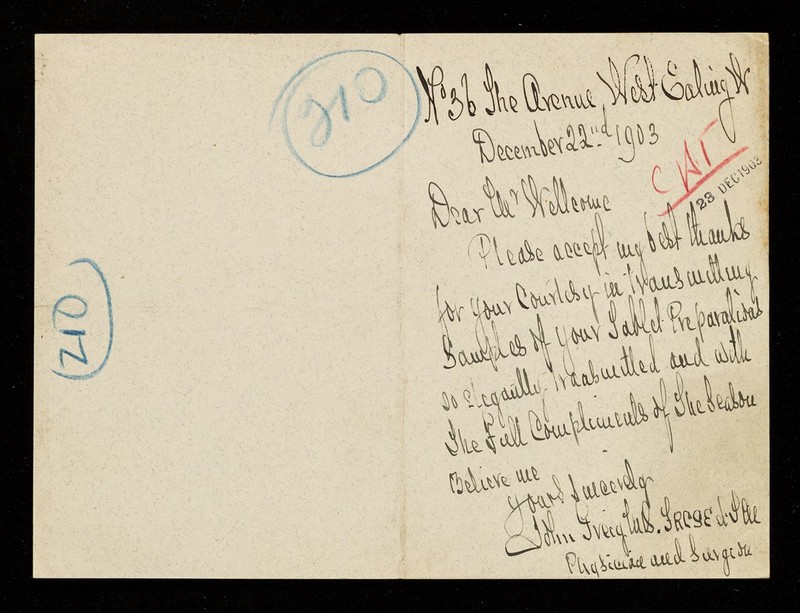 210
210
No 36 The Avenue, West Ealing W
December 22nd 1903
CAT
23 DEC 1903
Dear Mr Wellcome
Please accept my best thanks
for your Courtesy in transmitting
Samples of your Tablet Preparations
so elegantly transmitted and with
The Full Compliments of The Season
Believe me
yours sincerely
John Greig M.B. FRCSE
Physician and Surgeon